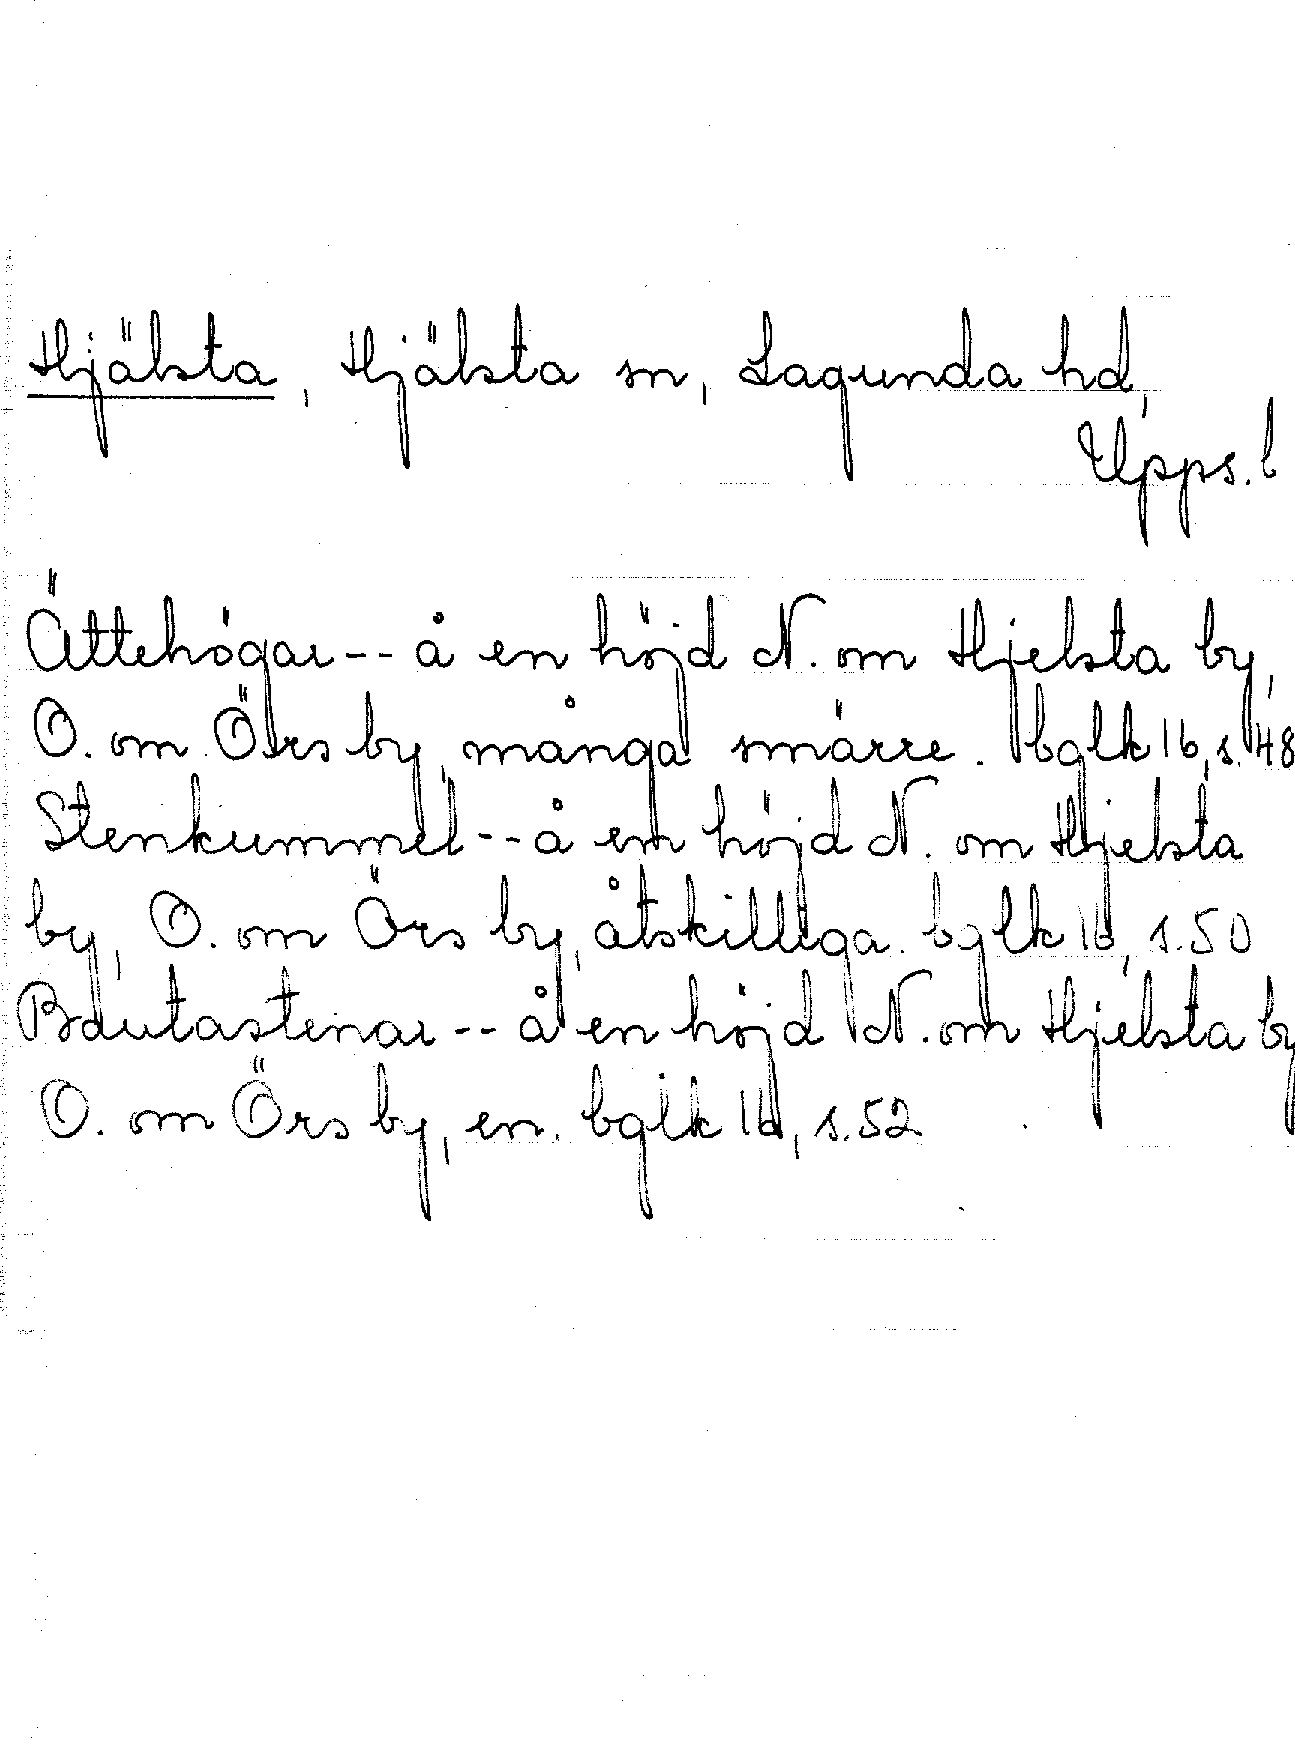 Hjälsta, Hjälsta sn, Lagunda hd,
Upps. l
Ättehögar -- å en höjd N. om Hjelsta by,
O. om Örs by, många smärre. bglk 16, s. 48
Stenkummel -- å en höjd N. om Hjelsta
by, O. om Örs by, åtskilliga. bglk 16, s. 50
Bautastenar -- å en höjd N. om Hjelsta by
O. om Örs by, en. bglk 16, s. 52